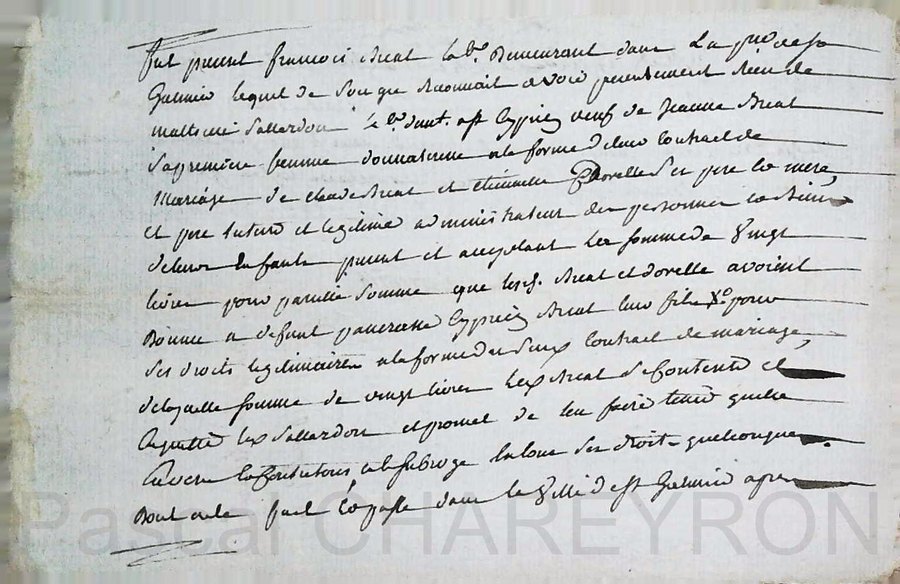 fut present françois Mcat lab.r Demeurant dans La p.sse de st
Galmier lequel de Son gre Reconnoit avoir presentement Receu de
mathieu Sallardon le v.r dud. st Cyprien veuf de jeanne Mcat
Sa premiere femme donnataire a la forme de leur Contract de
Mariage de claude Mcat et etiennette Dorelle Ses pere et mere
et pere tuteur et legitime administrateur des personnes et biens
de leurs Enfants present et acceptant la somme de Vingt
livres pour pareille Somme que lesd. Mcat et dorelle avoient
Donnée a defunt Cyprien Mcat leur fils pour
Ses droits legitimaires a la forme de Contract de mariage
de laquelle somme de vingt livres led. Mcat Se Contente et
Sallardon et promet de len faire tenir quitte
Envers et le Subroge En tous Ses droits quelconques
Dont acte fait et passé dans la Ville de st Galmier apres
Pascal CHAREYRON